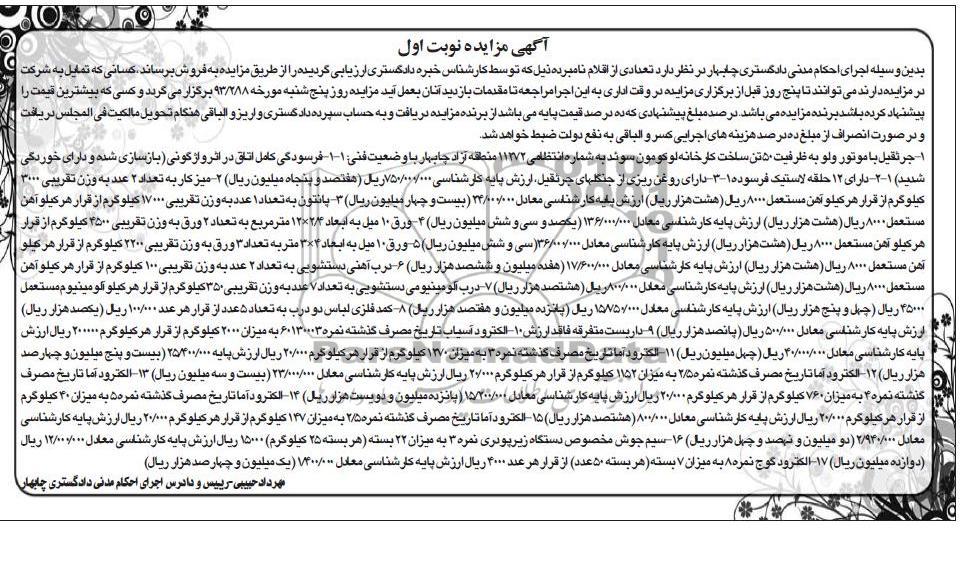 آگهی مزایده نوبت اول
بدین وسیله اجرای احکام مدنی دادگستری چابهار در نظر دارد تعدادی از اقلام نامبرده ذیل که توسط کارشناس خبره دادگستری ارزیابی گردیده را از طریق مزایده به فروش برساند، کسانی که تمایل به شرکت
در مزایده دارند می توانند تا پنج روز قبل از برگزاری مزایده در وقت اداری به این اجرا مراجعه تا مقدمات بازدید آنان بعمل آید. مزایده روز پنج شنبه مورخه ۹۳/۲/۸۸ برگزار می گردد و کسی که بیشترین قیمت را
پیشنهاد کرده باشد برنده مزایده می باشد. در صد مبلغ پیشنهادی که ده در صد قیمت پایه می باشد از برنده مزایده دریافت و به حساب سپرده دادگستری واریز و الباقی هنگام تحویل مالکیت فی المجلس دریافت
و در صورت انصراف از مبلغ ده درصد هزینه های اجرایی کسر و الباقی به نفع دولت ضبط خواهد شد.
۱-جرثقیل با موتور ولو به ظرفیت ۵۰ تن ساخت کارخانه لوکومون سوئد به شماره انتظامی ۱۱۲۷۲ منطقه آزاد چابهار با وضعیت فنی: ۱-۱-فرسودگی کامل اتاق در اثر واژگونی (بازسازی شده و دارای خوردگی
شدید) ۱-۲-دارای ۱۲ حلقه لاستیک فرسوده ۱-۳-دارای روغن ریزی از جنگلهای جرثقیل، ارزش پایه کارشناسی ۷۵۰/۰۰۰/۰۰۰ ریال (هفتصد و پنجاه میلیون ریال) ۲-میز کار به تعداد ۲ عدد به وزن تقریبی ۳۰۰۰
کیلوگرم از قرار هر کیلو آهن مستعمل ۸۰۰۰ ریال (هشت هزار ریال) ارزش پایه کارشناسی معادل ۲۴/۰۰۰/۰۰۰ (بیست و چهار میلیون ریال) ۳-پانتون به تعداد ۱ عدد به وزن تقریبی ۱۷۰۰۰ کیلوگرم از قرار هر کیلو آهن
مستعمل ۸۰۰۰ ریال (هشت هزار ریال) ارزش پایه کارشناسی معادل ۱۳۶/۰۰۰/۰۰۰ (یکصد و سی و شش میلیون ریال) ۴-ورق ۱۰ میل به ابعاد ۲/۴×۱۲ متر مربع به تعداد ۲ ورق به وزن تقریبی ۴۵۰۰ کیلوگرم از قرار
هر کیلو آهن مستعمل ۸۰۰۰ ریال (هشت هزار ریال) ارزش پایه کارشناسی معادل ۳۶/۰۰۰/۰۰۰ (سی و شش میلیون ریال) ۵-ورق ۱۰ میل به ابعاد ۴×۳ متر به تعداد ۳ ورق به وزن تقریبی ۲۲۰۰ کیلوگرم از قرار هر کیلو
آهن مستعمل ۸۰۰۰ ریال (هشت هزار ریال) ارزش پایه کارشناسی معادل ۱۷/۶۰۰/۰۰۰ (هفده میلیون و ششصد هزار ریال) ۶-درب آهنی دستشویی به تعداد ۲ عدد به وزن تقریبی ۱۰۰ کیلوگرم از قرار هر کیلو آهن
مستعمل ۸۰۰۰ ریال (هشت هزار ریال) ارزش پایه کارشناسی معادل ۸۰۰/۰۰۰ ریال (هشتصد هزار ریال) ۷-درب آلومینیومی دستشویی به تعداد ۷ عدد به وزن تقریبی ۳۵۰ کیلوگرم از قرار هر کیلو آلومینیوم مستعمل
۴۵۰۰۰ ریال (چهل و پنج هزار ریال) ارزش پایه کارشناسی معادل ۱۵/۷۵۰/۰۰۰ ریال (پانزده میلیون و هفتصد هزار ریال) ۸-کمد فلزی لباس دو درب به تعداد ۵ عدد از قرار هر عدد ۱۰۰/۰۰۰ ریال (یکصد هزار ریال)
ارزش پایه کارشناسی معادل ۵۰۰/۰۰۰ ریال (پانصد هزار ریال) ۹-داربست متفرقه فاقد ارزش ۱۰-الکترود آسیاب تاریخ مصرف گذشته نمره ۳-۶۰۱۳ به میزان ۲۰۰۰ کیلوگرم از قرار هر کیلوگرم ۲۰۰۰۰ ریال ارزش
پایه کارشناسی معادل ۴۰/۰۰۰/۰۰۰ ریال (چهل میلیون ریال) ۱۱-الکترود آما تاریخ مصرف گذشته نمره ۳ به میزان ۱۲۷۰ کیلوگرم از قرار هر کیلوگرم ۲۰/۰۰۰ ریال ارزش پایه ۲۵/۴۰۰/۰۰۰ (بیست و پنج میلیون و چهار صد
هزار ریال) ۱۲-الکترود آما تاریخ مصرف گذشته نمره ۲/۵ به میزان ۱۱۵۲ کیلوگرم از قرار هر کیلوگرم ۲۰/۰۰۰ ریال ارزش پایه کارشناسی معادل ۲۳/۰۰۰/۰۰۰ (بیست و سه میلیون ریال) ۱۳-الکترود آما تاریخ مصرف
گذشته نمره ۴ به میزان ۷۶۰ کیلوگرم از قرار هر کیلوگرم ۲۰/۰۰۰ ریال ارزش پایه کارشناسی معادل ۱۵/۲۰۰/۰۰۰ (پانزده میلیون و دویست هزار ریال) ۱۴-الکترود آما تاریخ مصرف گذشته نمره ۵ به میزان ۴۰ کیلوگرم
از قرار هر کیلوگرم ۲۰/۰۰۰ ریال ارزش پایه کارشناسی معادل ۸۰۰/۰۰۰ (هشتصد هزار ریال) ۱۵-الکترود آما تاریخ مصرف گذشته نمره ۲/۵ به میزان ۱۴۷ کیلوگرم از قرار هر کیلوگرم ۲۰/۰۰۰ ریال ارزش پایه کارشناسی
معادل ۲/۹۴۰/۰۰۰ (دو میلیون و نهصد و چهل هزار ریال) ۱۶-سیم جوش مخصوص دستگاه زیر پودری نمره ۳ به میزان ۲۲ بسته (هر بسته ۲۵ کیلوگرم) ۱۵۰۰۰ ریال ارزش پایه کارشناسی معادل ۱۲/۰۰۰/۰۰۰ ریال
(دوازده میلیون ریال) ۱۷-الکترود گوج نمره ۸ به میزان ۷ بسته (هر بسته ۵۰ عدد) از قرار هر عدد ۴۰۰۰ ریال ارزش پایه کارشناسی معادل ۱/۴۰۰/۰۰۰ (یک میلیون و چهار صد هزار ریال)
مهرداد حبیبی-رییس و دادرس اجرای احکام مدنی دادگستری چابهار